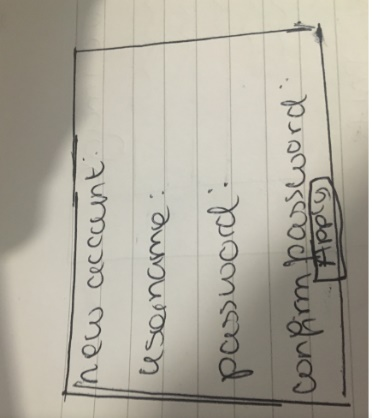 new account:
username:
password:
confirm password:
Apply